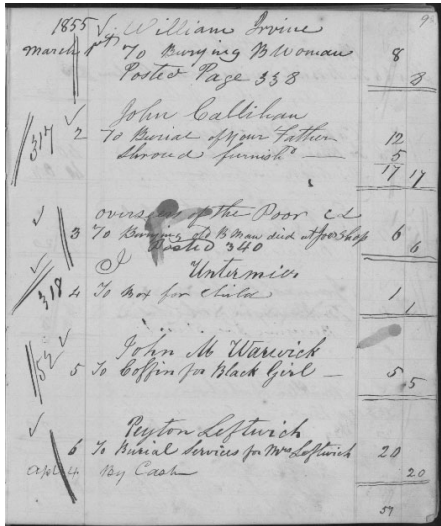 9
1855 William Irvine
March 1st To Burying B Woman 8
Posted Page 338 8
John Callihan
317 2 To Burial of your Father 12
Shroud furnishd — 5
17 17
overseers of the Poor
3 To Burying old B Man died at poor shop 6
Posted 340 6
Untermier
318 4 To Box for child 1
1
John M Warwick
52 5 To Coffin for Black Girl — 5
5
Peyton Leftwich
6 To Burial Services for Mrs Leftwich 20
Apl 4 By Cash 20
57